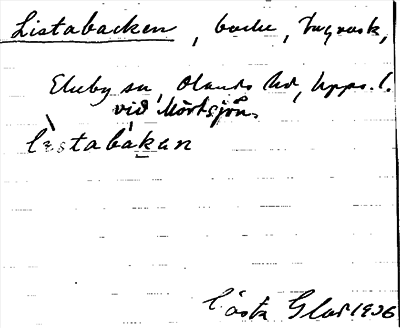 Listabacken, backe, Ingvask,
Ekeby sn, Olands hd, Upps. l.
vid Mörtsjön.
lìstabákan
Gösta Glad 1936